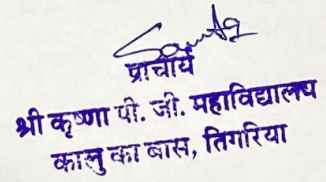 प्राचार्य
श्री कृष्णा पी. जी. महाविद्यालय
कालु का बास, तिगरिया